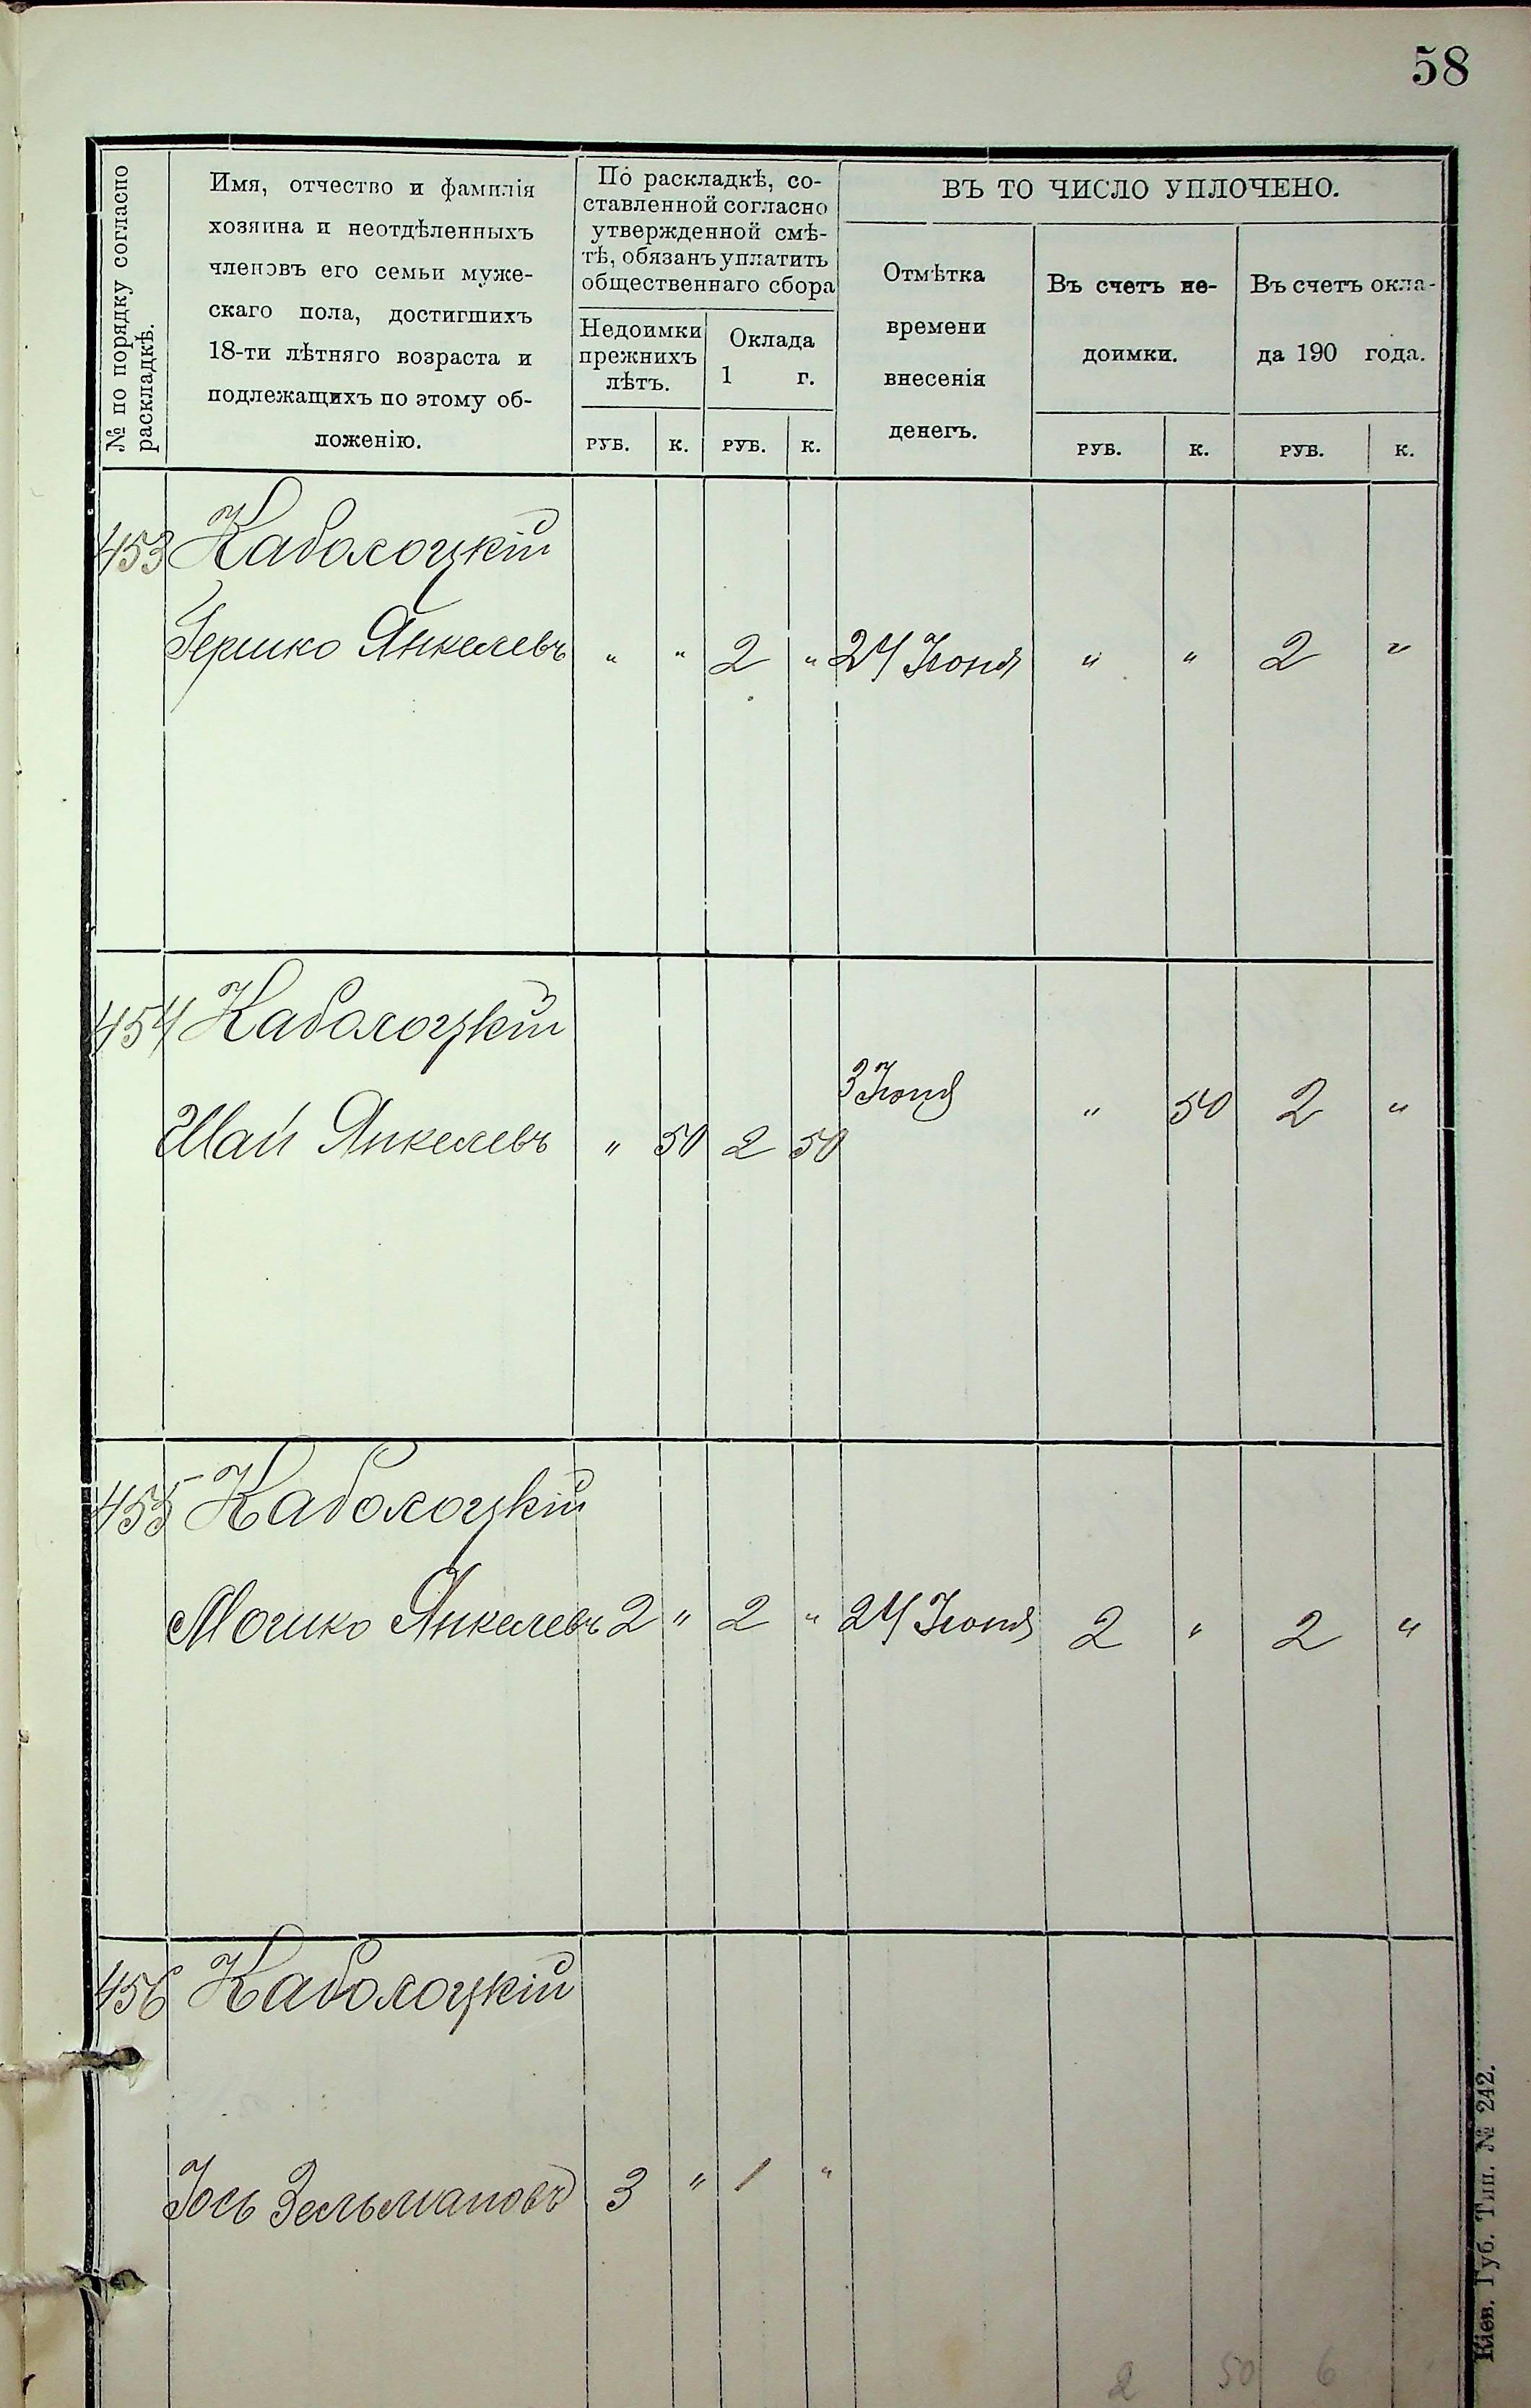 58
№ по порядку согласно
раскладкѣ.
Имя, отчество и фамилія
хозяина и неотдѣленныхъ
членовъ его семьи муже-
скаго пола, достигшихъ
18-ти лѣтняго возраста и
подлежащихъ по этому об-
ложенію.
По раскладкѣ, со-
ставленной согласно
утвержденной смѣ-
тѣ, обязанъ уплатить
общественнаго сбора
Недоимки
прежнихъ
лѣтъ.
Оклада
1 г.
ВЪ ТО ЧИСЛО УПЛОЧЕНО.
Отмѣтка
времени
внесенія
денегъ.
Въ счетъ не-
доимки.
Въ счетъ окла-
да 190 года.
РУБ. К. РУБ. К. РУБ. К. РУБ. К.
453 Каболоцкій
Гершко Янкелевъ " " 2 " 24 Іюня " " 2 "
454 Каболоцкій
3 Іюня " 50 2 "
Шай Янкелевъ " 50 2 50
455 Каболоцкій
Мошко Янкелевъ 2 " 2 " 24 Іюня 2 " 2 "
456 Каболоцкій
Іось Зельмановъ 3 " 1 "
2 50 6
Кіев. Губ. Тип. № 242.